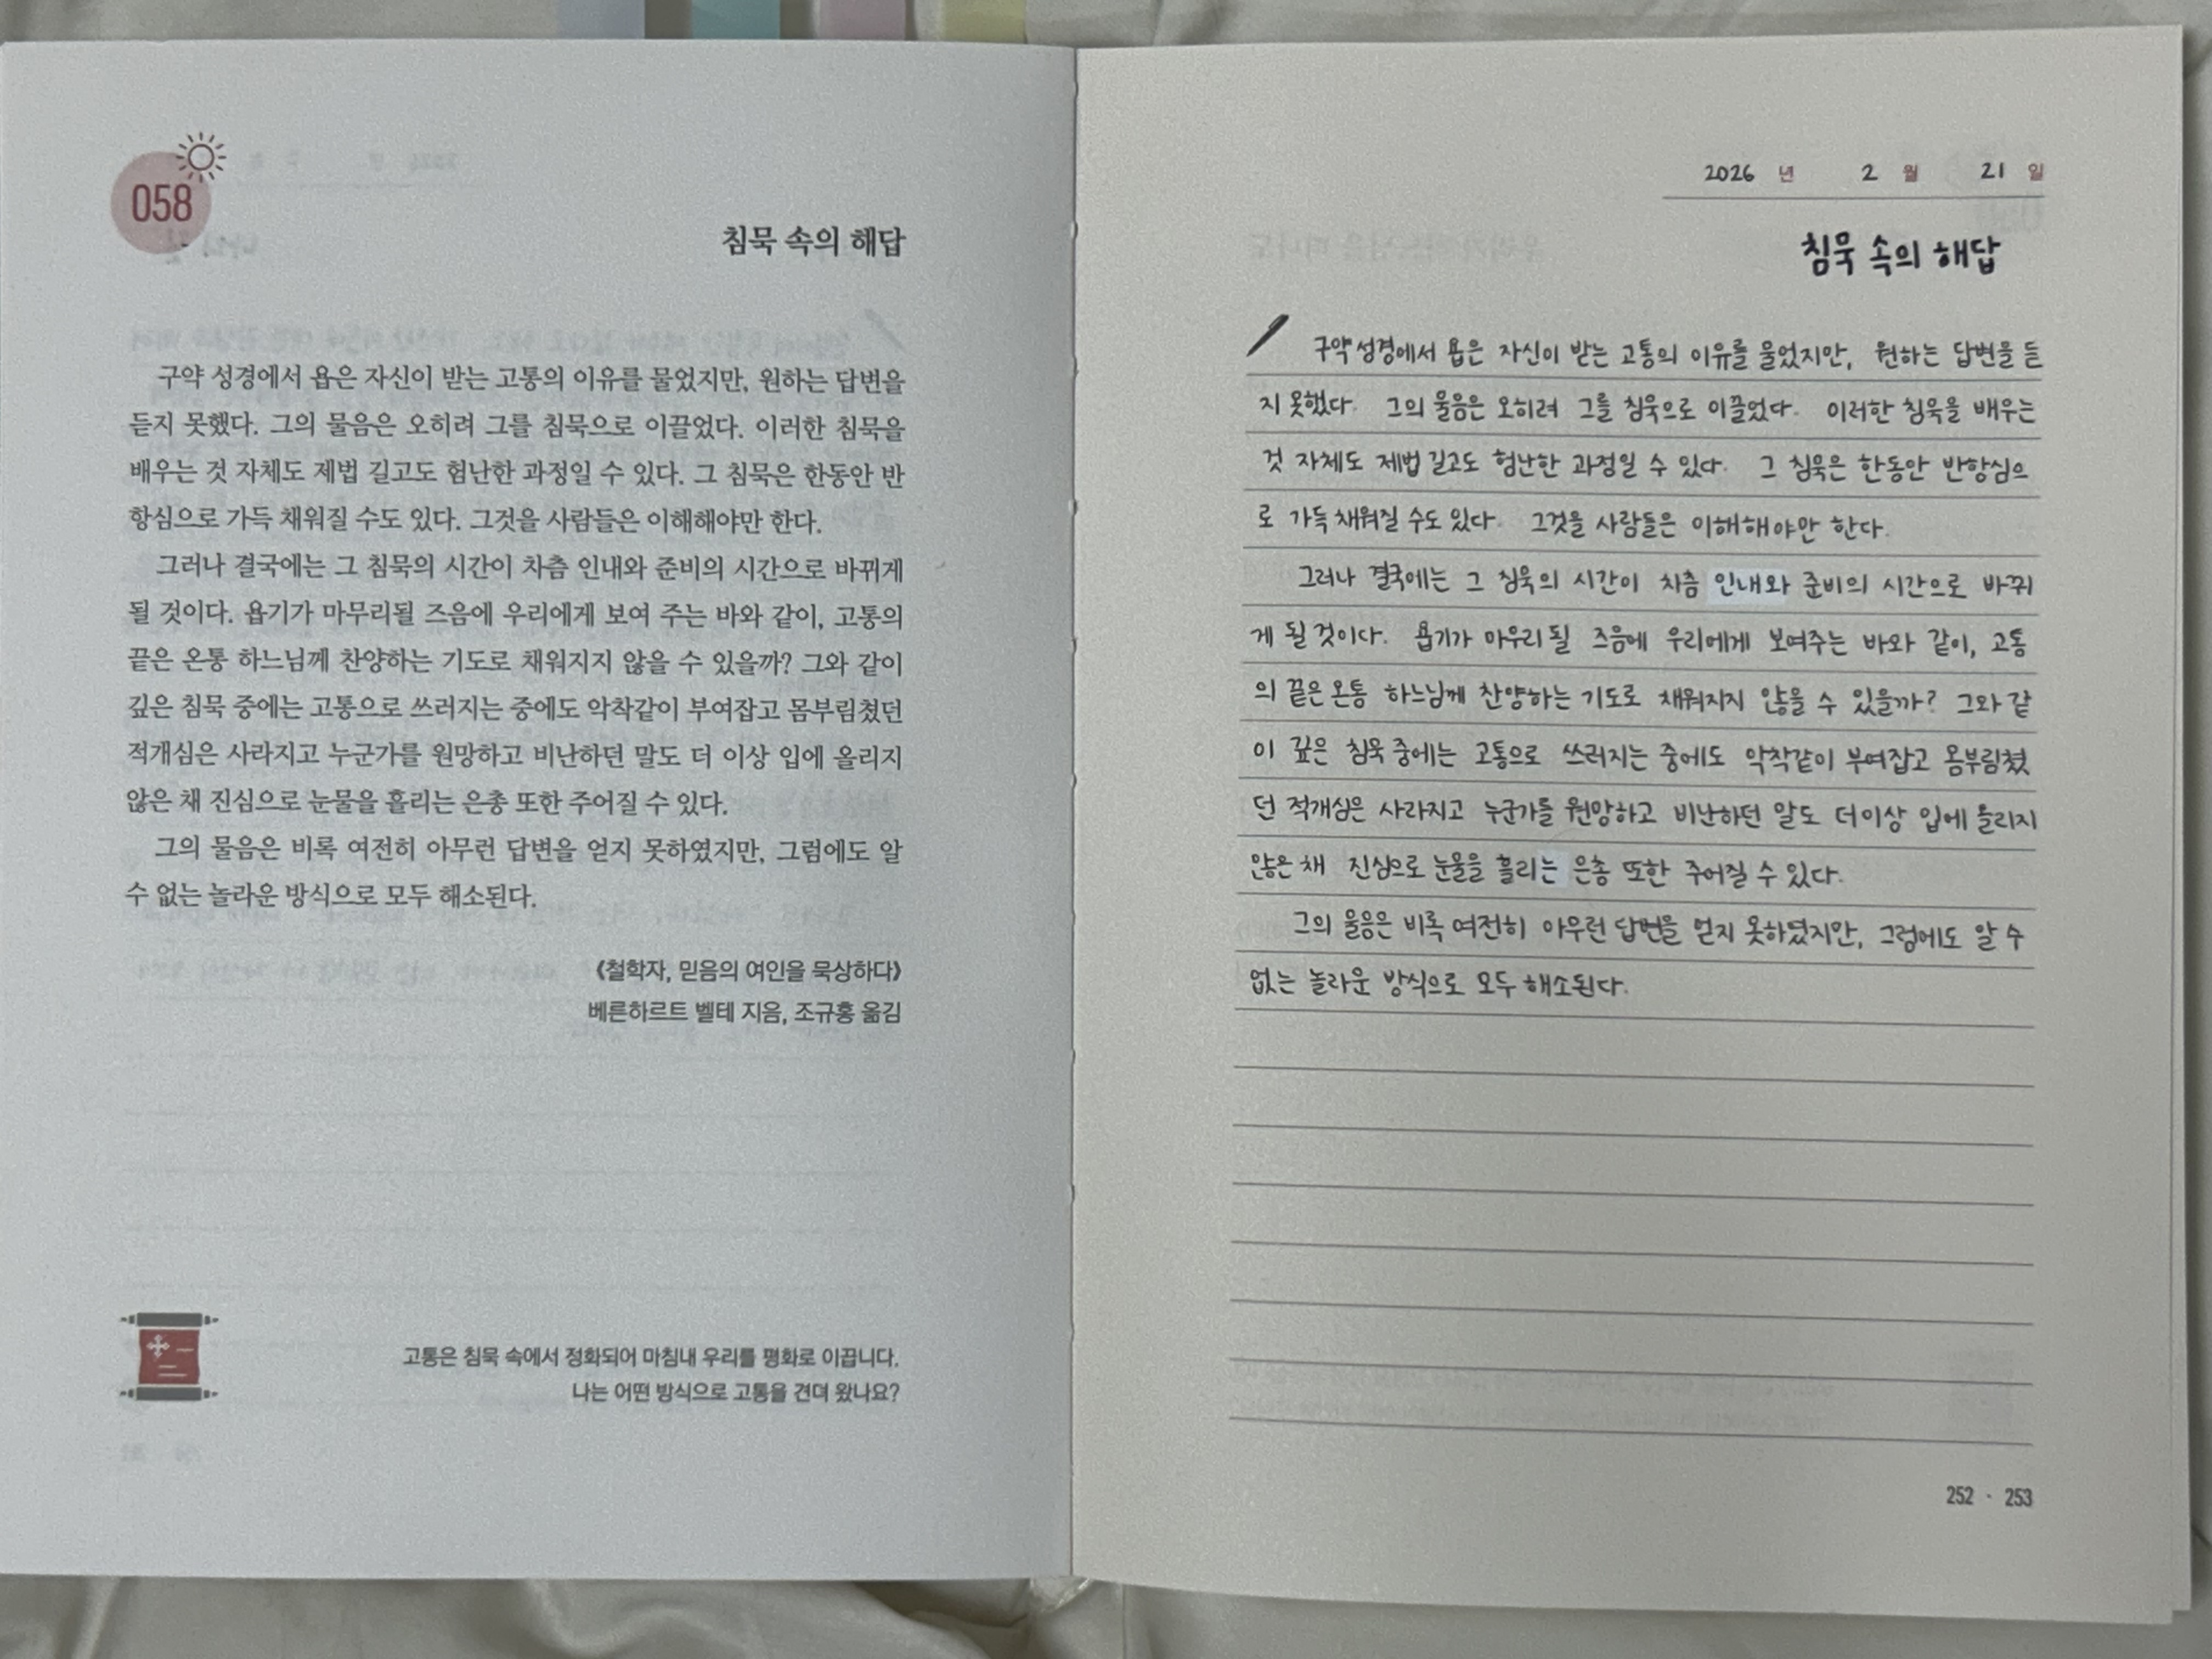 058
침묵 속의 해답
구약 성경에서 욥은 자신이 받는 고통의 이유를 물었지만, 원하는 답변을
듣지 못했다. 그의 물음은 오히려 그를 침묵으로 이끌었다. 이러한 침묵을
배우는 것 자체도 제법 길고도 험난한 과정일 수 있다. 그 침묵은 한동안 반
항심으로 가득 채워질 수도 있다. 그것을 사람들은 이해해야만 한다.
그러나 결국에는 그 침묵의 시간이 차츰 인내와 준비의 시간으로 바뀌게
될 것이다. 욥기가 마무리될 즈음에 우리에게 보여 주는 바와 같이, 고통의
끝은 온통 하느님께 찬양하는 기도로 채워지지 않을 수 있을까? 그와 같이
깊은 침묵 중에는 고통으로 쓰러지는 중에도 악착같이 부여잡고 몸부림쳤던
적개심은 사라지고 누군가를 원망하고 비난하던 말도 더 이상 입에 올리지
않은 채 진심으로 눈물을 흘리는 은총 또한 주어질 수 있다.
그의 물음은 비록 여전히 아무런 답변을 얻지 못하였지만, 그럼에도 알
수 없는 놀라운 방식으로 모두 해소된다.
《철학자, 믿음의 여인을 묵상하다》
베른하르트 벨테 지음, 조규홍 옮김
고통은 침묵 속에서 정화되어 마침내 우리를 평화로 이끕니다.
나는 어떤 방식으로 고통을 견뎌 왔나요?
2026 년 2 월 21 일
침묵 속의 해답
구약 성경에서 욥은 자신이 받는 고통의 이유를 물었지만, 원하는 답변을 듣
지 못했다. 그의 물음은 오히려 그를 침묵으로 이끌었다. 이러한 침묵을 배우는
것 자체도 제법 길고도 험난한 과정일 수 있다. 그 침묵은 한동안 반항심으
로 가득 채워질 수도 있다. 그것을 사람들은 이해해야만 한다.
그러나 결국에는 그 침묵의 시간이 차츰 인내와 준비의 시간으로 바뀌
게 될 것이다. 욥기가 마무리 될 즈음에 우리에게 보여주는 바와 같이, 고통
의 끝은 온통 하느님께 찬양하는 기도로 채워지지 않을 수 있을까? 그와 같
이 깊은 침묵 중에는 고통으로 쓰러지는 중에도 악착같이 부여잡고 몸부림쳤
던 적개심은 사라지고 누군가를 원망하고 비난하던 말도 더이상 입에 올리지
않은 채 진심으로 눈물을 흘리는 은총 또한 주어질 수 있다.
그의 물음은 비록 여전히 아무런 답변을 얻지 못하였지만, 그럼에도 알 수
없는 놀라운 방식으로 모두 해소된다.
252 · 253